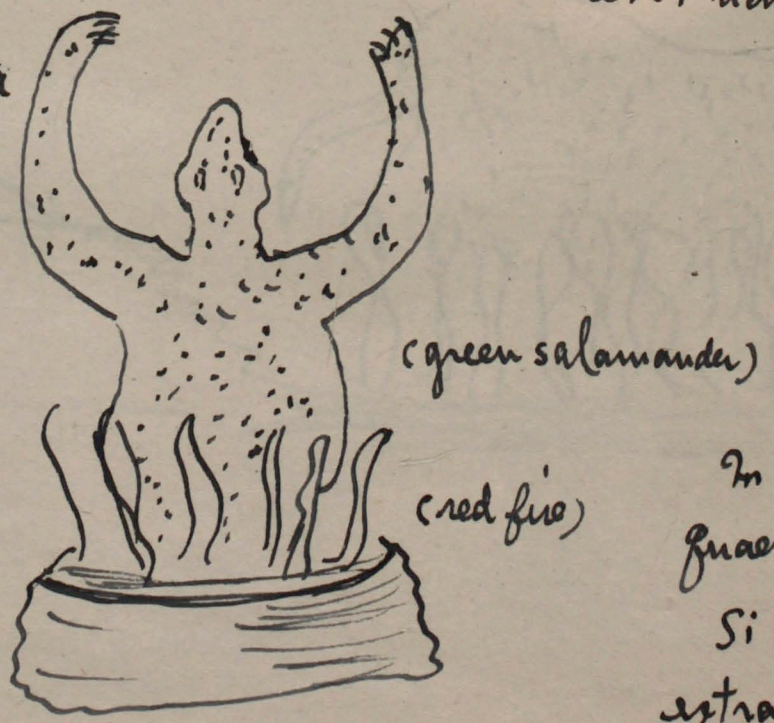 (green salamander)
(red fire)
In
quae
Si
extra